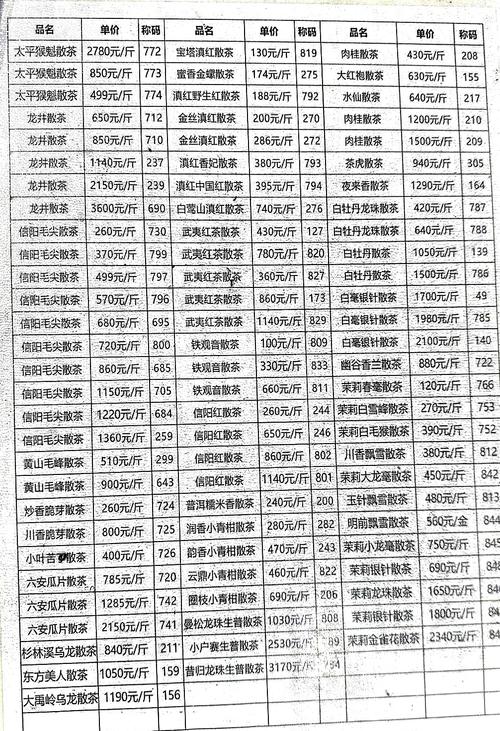 品名 单价 称码 品名 单价 称码 品名 单价 称码
太平猴魁散茶 2780元/斤 772 宝塔滇红散茶 130元/斤 819 肉桂散茶 430元/斤 208
太平猴魁散茶 850元/斤 773 蜜香金螺散茶 174元/斤 275 大红袍散茶 630元/斤 155
太平猴魁散茶 499元/斤 774 滇红野生红散茶 188元/斤 792 水仙散茶 640元/斤 217
龙井散茶 650元/斤 712 金丝滇红散茶 200元/斤 270 肉桂散茶 1200元/斤 210
龙井散茶 850元/斤 710 金丝滇红散茶 286元/斤 272 肉桂散茶 1500元/斤 209
龙井散茶 1140元/斤 237 滇红香妃散茶 380元/斤 793 茶虎散茶 940元/斤 305
龙井散茶 2150元/斤 239 滇红中国红散茶 395元/斤 794 夜来香散茶 1290元/斤 164
龙井散茶 3600元/斤 690 白莺山滇红散茶 740元/斤 276 白牡丹龙珠散茶 420元/斤 787
信阳毛尖散茶 260元/斤 730 武夷红茶散茶 430元/斤 127 白牡丹龙珠散茶 640元/斤 788
信阳毛尖散茶 370元/斤 799 武夷红茶散茶 780元/斤 820 白牡丹散茶 1050元/斤 139
信阳毛尖散茶 499元/斤 797 武夷红茶散茶 360元/斤 827 白牡丹散茶 1500元/斤 786
信阳毛尖散茶 570元/斤 796 武夷红茶散茶 860元/斤 173 白毫银针散茶 1700元/斤 49
信阳毛尖散茶 680元/斤 695 武夷红茶散茶 1140元/斤 829 白毫银针散茶 1980元/斤 785
信阳毛尖散茶 720元/斤 800 铁观音散茶 100元/斤 809 白毫银针散茶 2100元/斤 140
信阳毛尖散茶 860元/斤 685 铁观音散茶 330元/斤 833 幽谷香兰散茶 880元/斤 722
信阳毛尖散茶 1150元/斤 705 铁观音散茶 660元/斤 811 茉莉春毫散茶 120元/斤 766
信阳毛尖散茶 1220元/斤 684 信阳红散茶 260元/斤 244 茉莉白雪峰散茶 270元/斤 753
信阳毛尖散茶 1360元/斤 259 信阳红散茶 650元/斤 246 茉莉白毛猴散茶 390元/斤 752
黄山毛峰散茶 510元/斤 299 信阳红散茶 860元/斤 802 川香飘散茶 380元/斤 812
黄山毛峰散茶 900元/斤 643 信阳红散茶 1140元/斤 801 茉莉大龙毫散茶 450元/斤 842
炒香脆芽散茶 260元/斤 724 普洱糯米香散茶 240元/斤 200 玉针飘雪散茶 480元/斤 813
川香脆芽散茶 800元/斤 725 润香小青柑散茶 280元/斤 282 明前飘雪散茶 560元/金 844
小叶苦 散茶 400元/斤 726 韵香小青柑散茶 470元/斤 243 茉莉小龙毫散茶 750元/斤 845
六安瓜片散茶 785元/斤 720 云鼎小青柑散茶 460元/斤 822 茉莉银针散茶 690元/斤 848
六安瓜片散茶 1285元/斤 742 圈枝小青柑散茶 690元/斤 206 茉莉龙珠散茶 1650元/斤
六安瓜片散茶 2150元/斤 741 曼松龙珠生普散茶 1030元/斤 808 茉莉银针散茶 1800元/斤
杉林溪乌龙散茶 840元/斤 211 小户赛生普散茶 2530元/斤 茉莉金雀花散茶 2340元/斤
东方美人散茶 1050元/斤 159 昔归龙珠生普散茶 3170元/斤
大禹岭乌龙散茶 1190元/斤 156